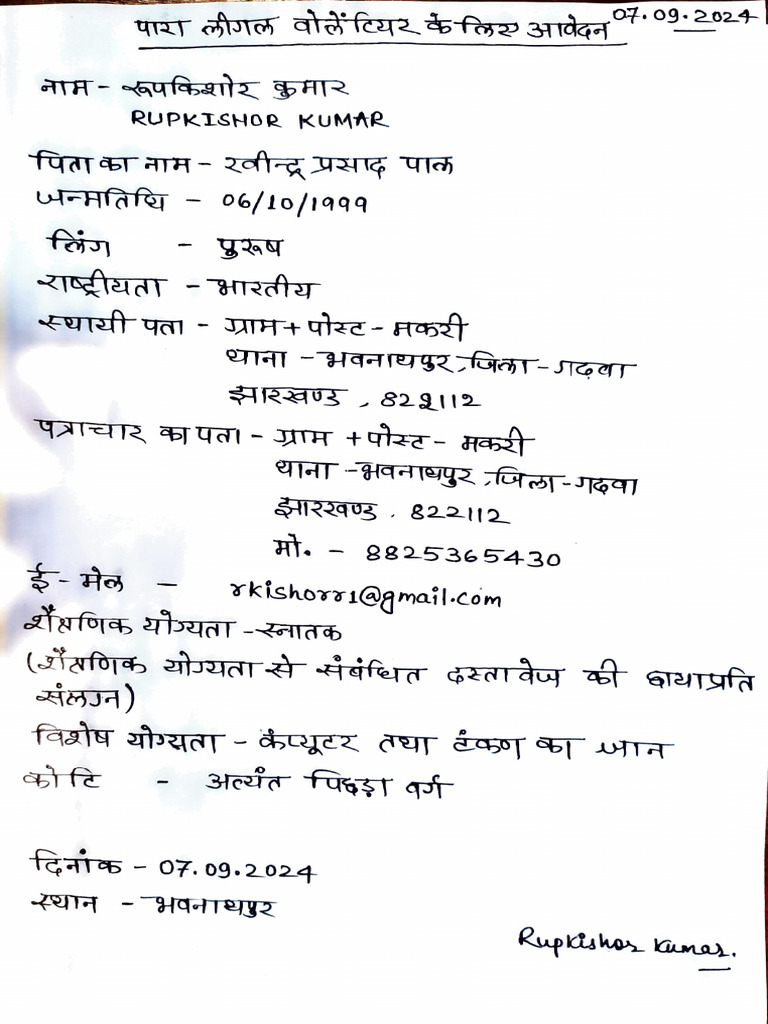 पारा लीगल वोलेंटियर के लिए आवेदन 07.09.2024
नाम - रूपकिशोर कुमार
RUPKISHOR KUMAR
पिता का नाम - रवीन्द्र प्रसाद पाल
जन्मतिथि - 06/10/1999
लिंग - पुरूष
राष्ट्रीयता - भारतीय
स्थायी पता - ग्राम + पोस्ट - मकरी
थाना - भवनाथपुर, जिला - गढ़वा
झारखण्ड, 822112
पत्राचार का पता - ग्राम + पोस्ट - मकरी
थाना - भवनाथपुर, जिला - गढ़वा
झारखण्ड, 822112
मो. - 8825365430
ई - मेल - rkishorr1@gmail.com
शैक्षणिक योग्यता - स्नातक
(शैक्षणिक योग्यता से संबंधित दस्तावेज की छायाप्रति
संलग्न)
विशेष योग्यता - कंप्यूटर तथा टंकण का ज्ञान
कोटि - अत्यंत पिछड़ा वर्ग
दिनांक - 07.09.2024
स्थान - भवनाथपुर
Rupkishor Kumar.